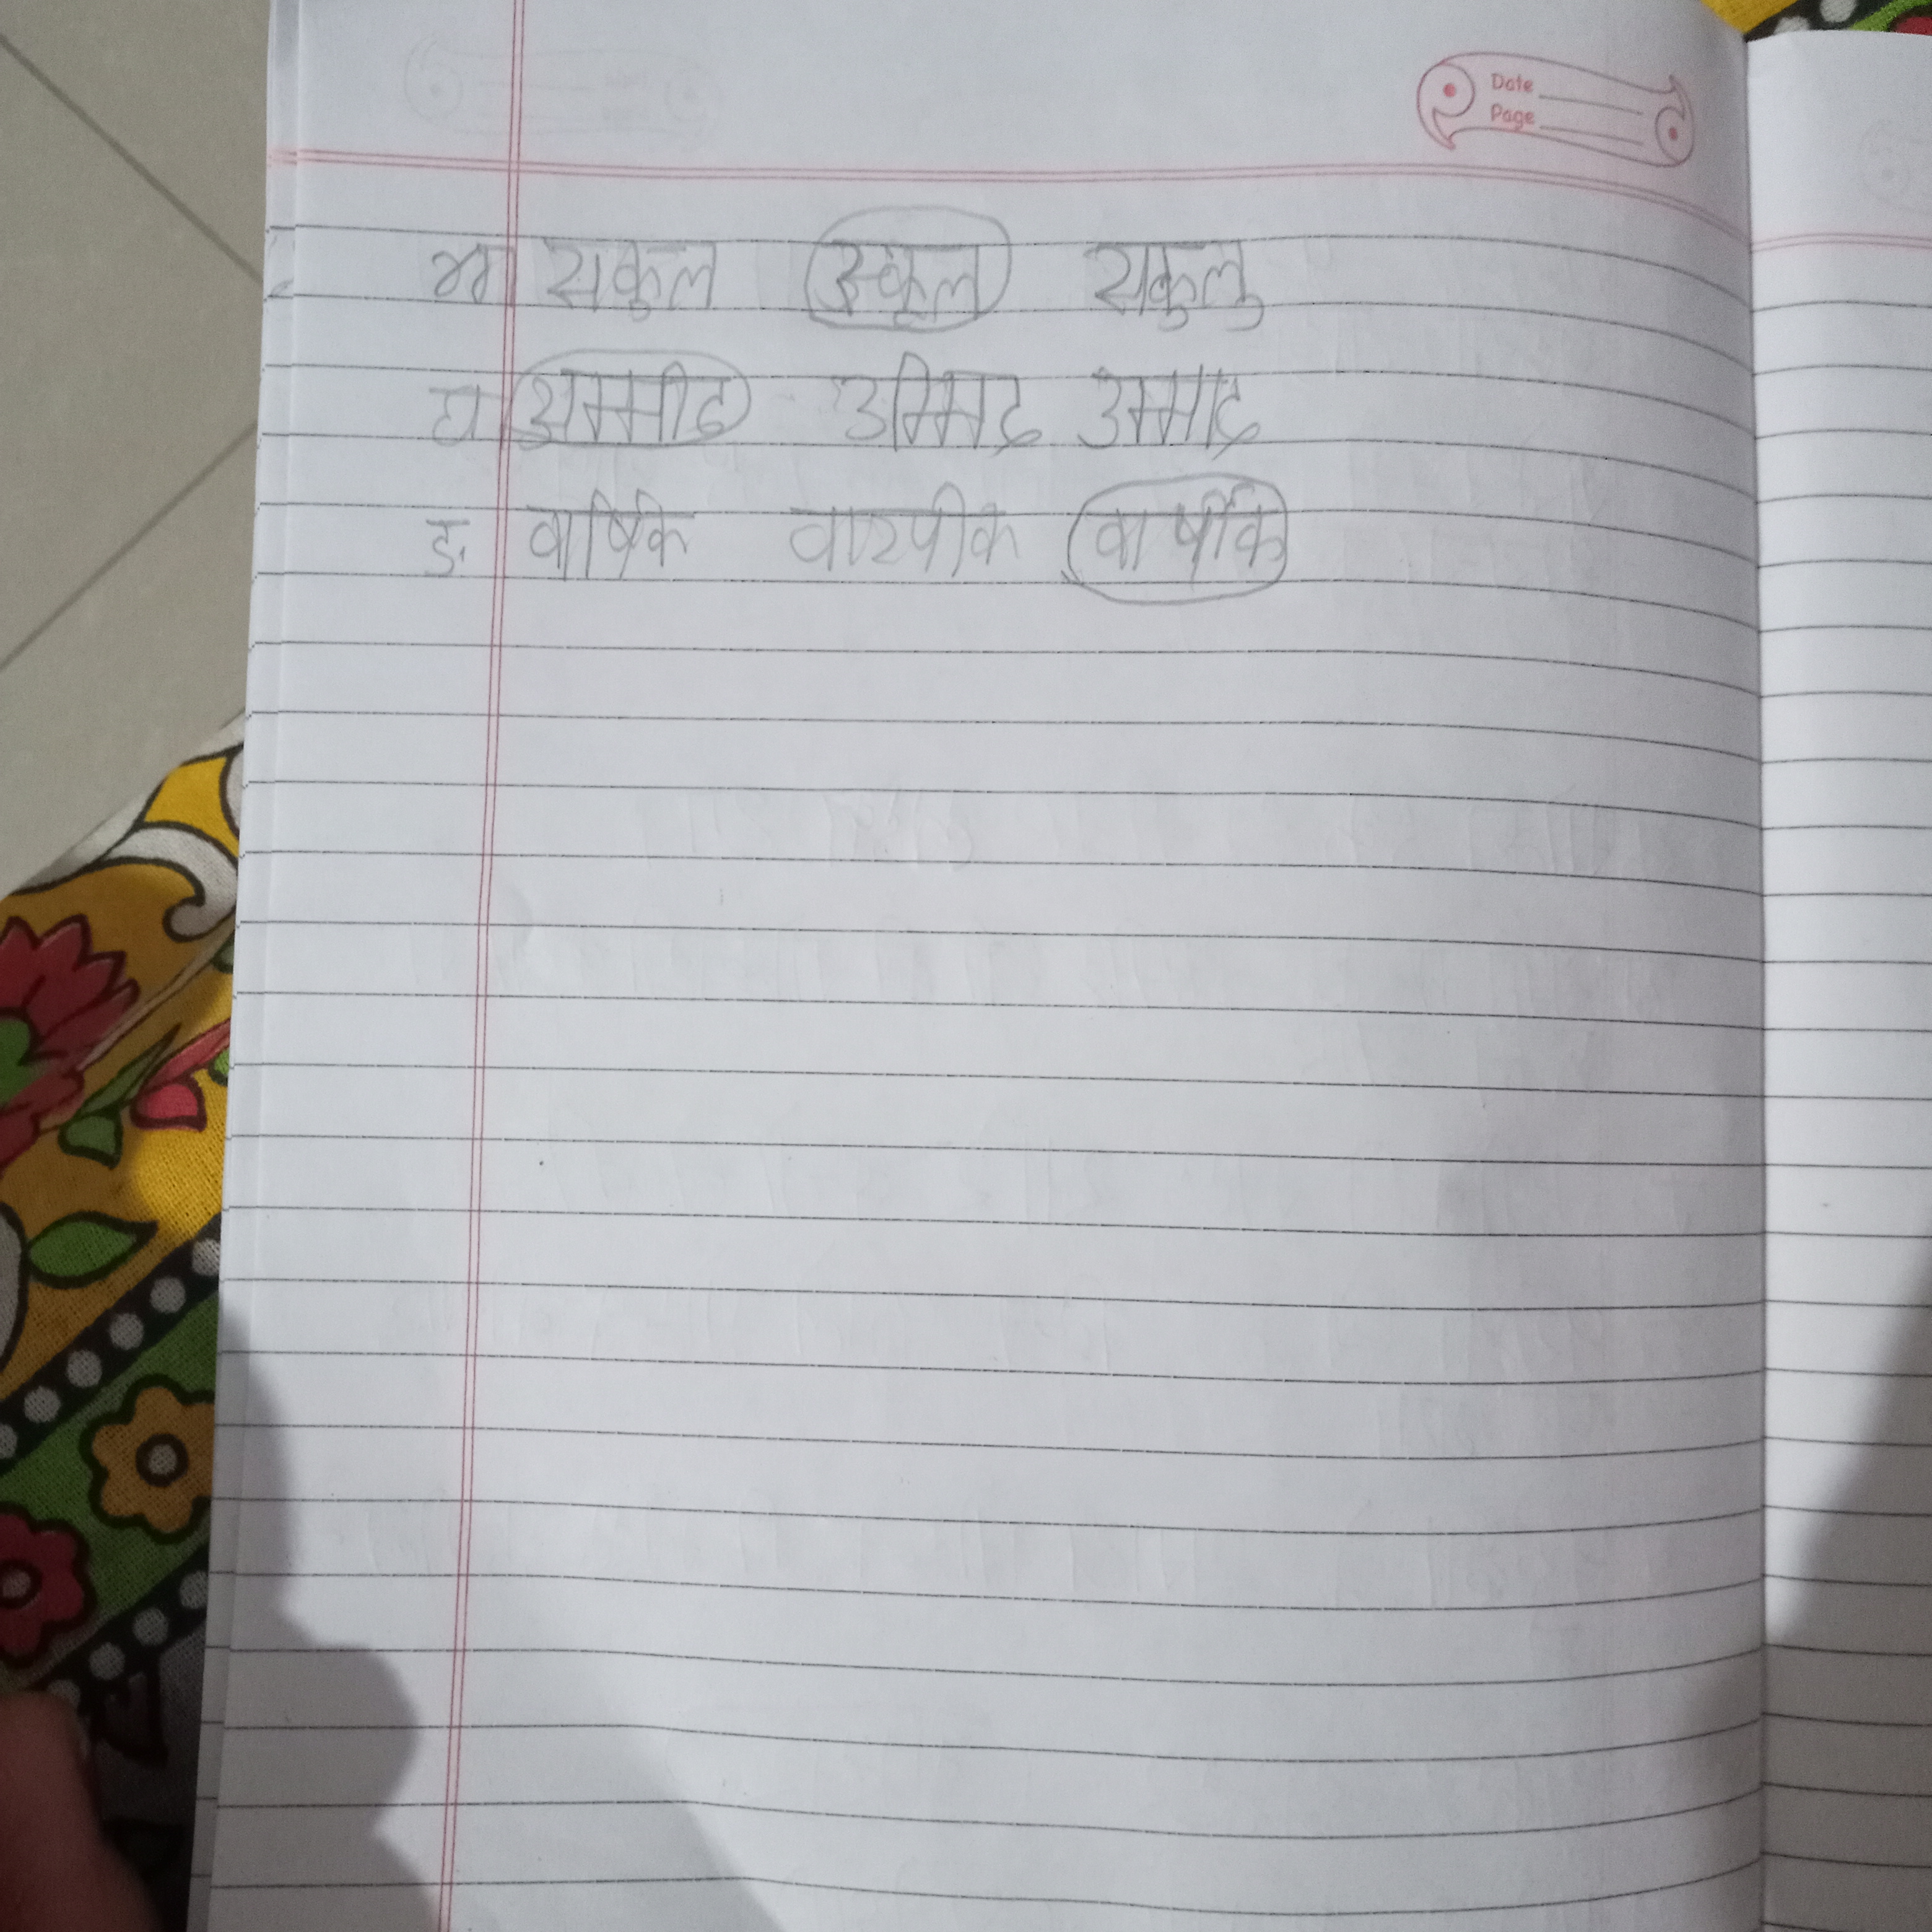 Date
Page
सकुल स्कूल सकुलु
घ अम्मीद उम्मिद उम्माद
ङ वार्षिक वारषीक वार्षीक